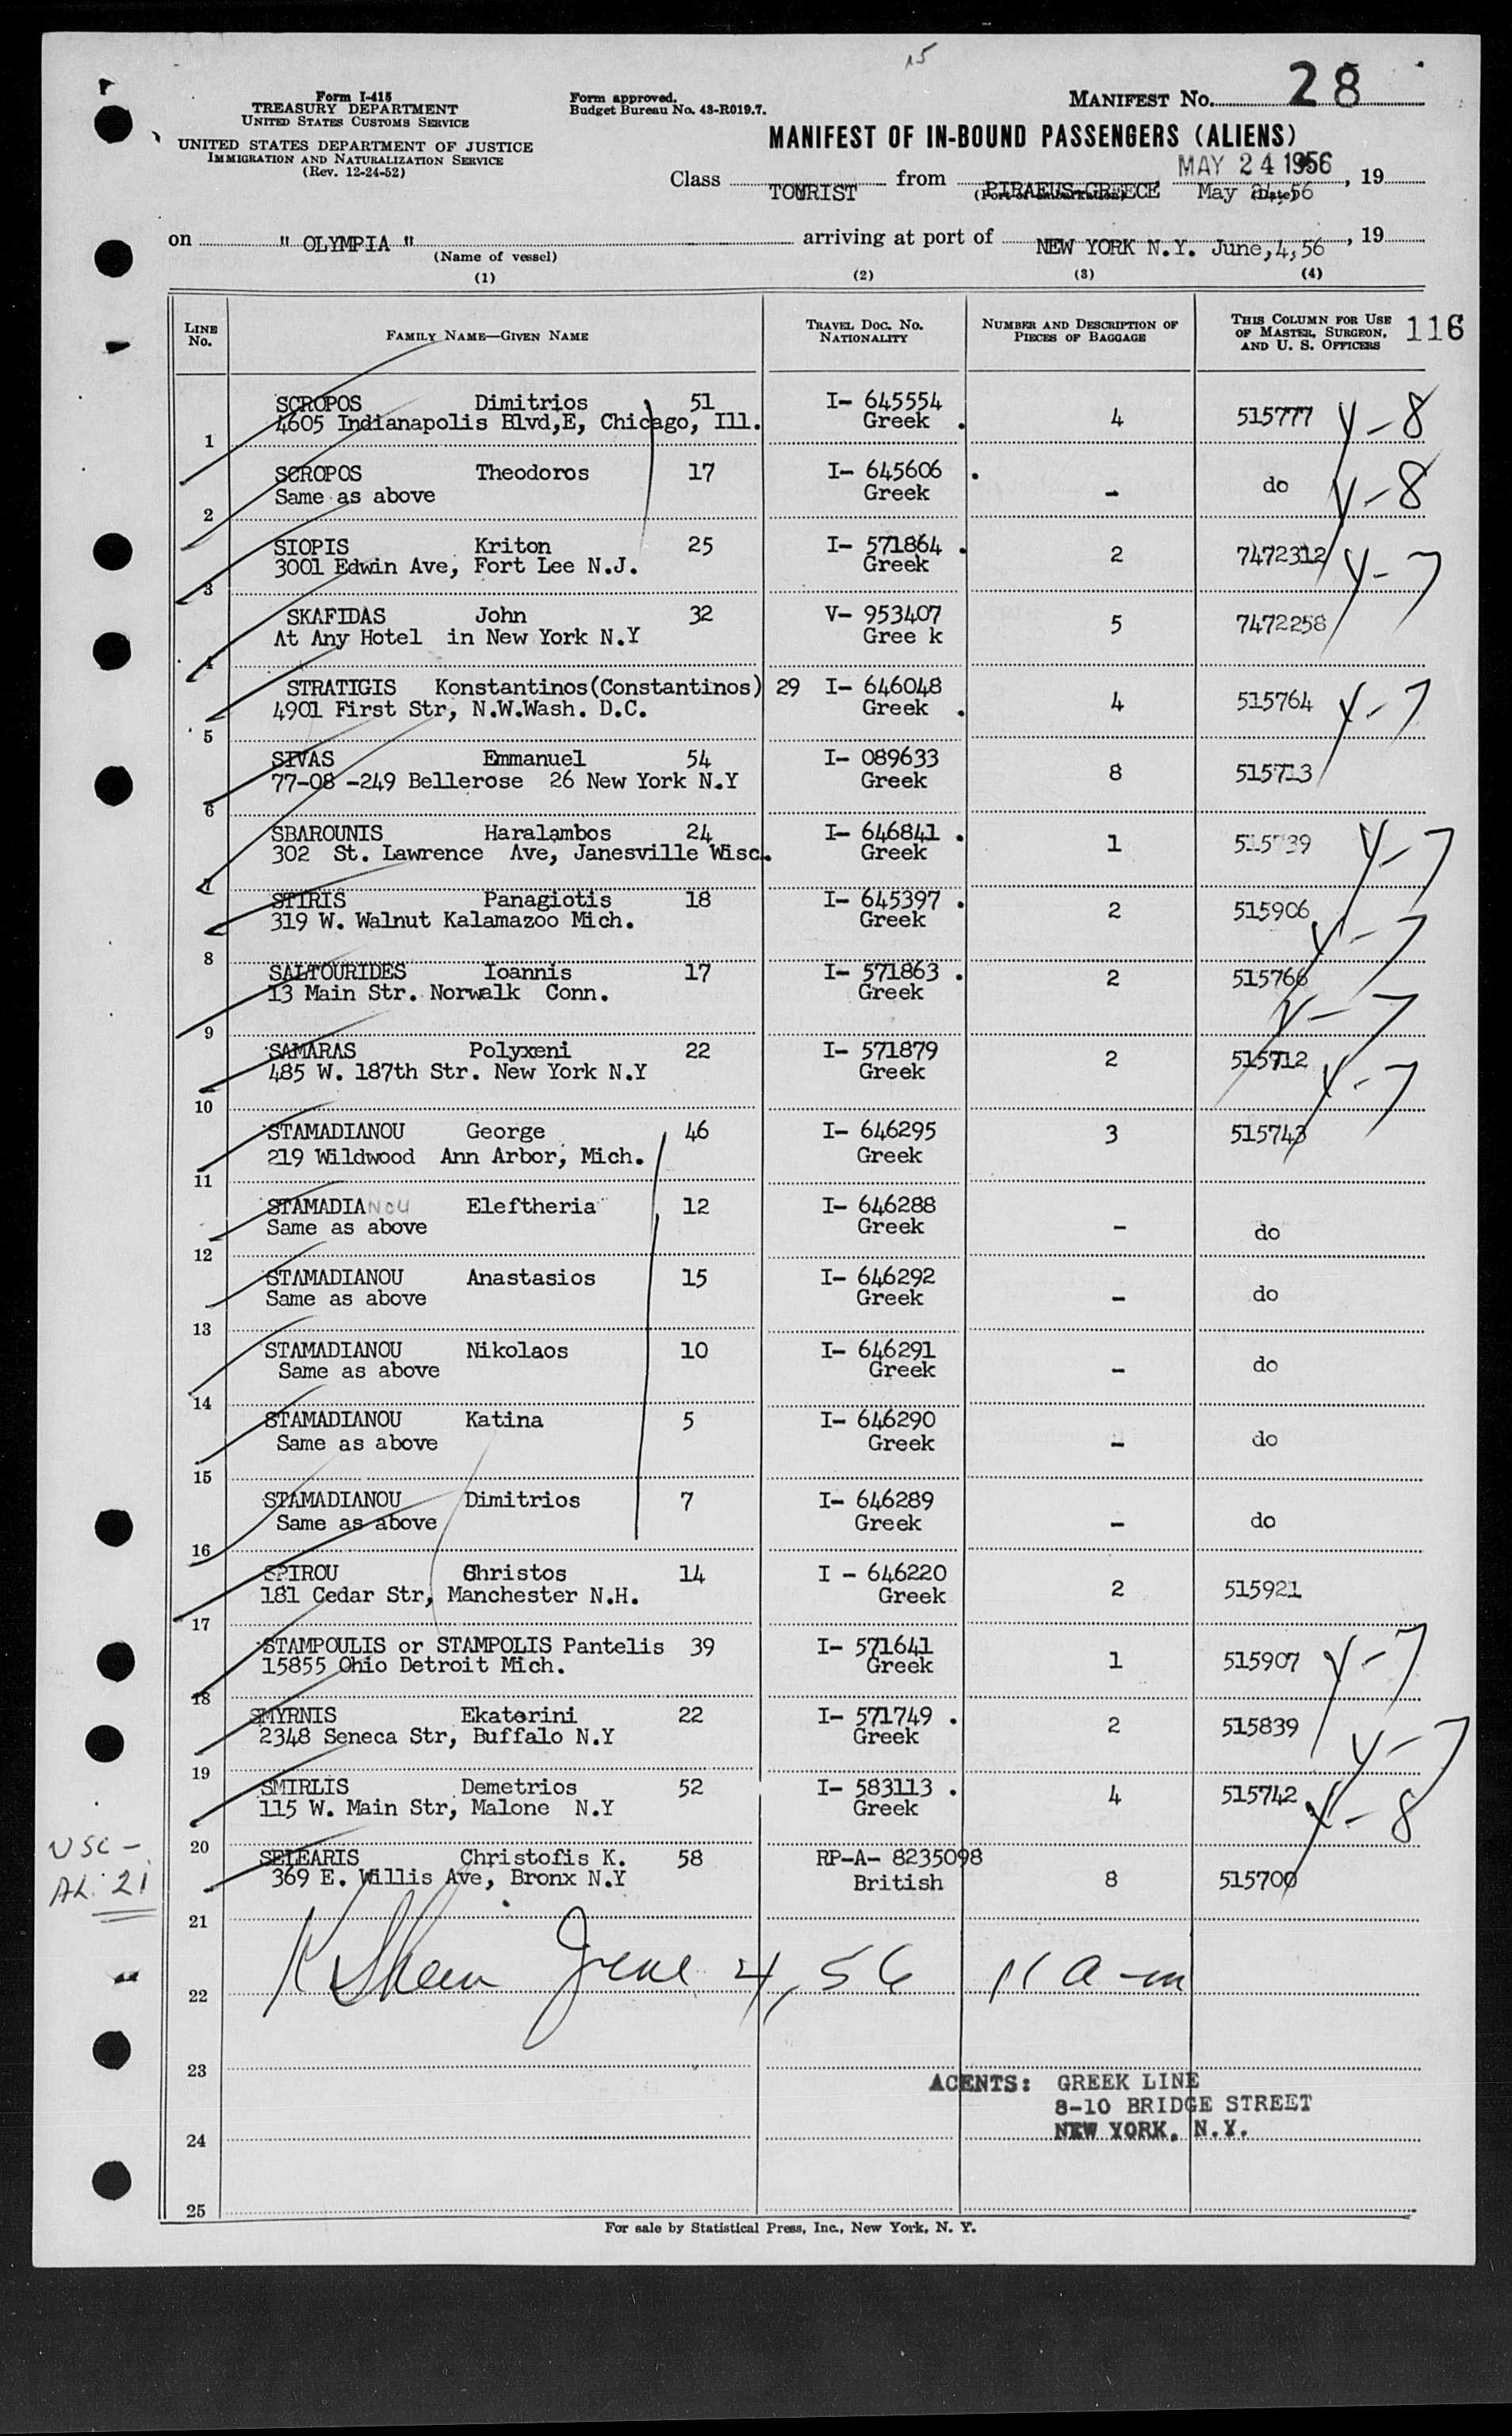 15
28
Form I-415
TREASURY DEPARTMENT
UNITED STATES CUSTOMS SERVICE
Form approved.
Budget Bureau No. 43-R019.7.
MANIFEST No.
UNITED STATES DEPARTMENT OF JUSTICE
IMMIGRATION AND NATURALIZATION SERVICE
(Rev. 12-24-52)
MANIFEST OF IN-BOUND PASSENGERS (ALIENS)
MAY 24 1956
Class TOURIST from PIRAEUS-GREECE May 24, 56, 19
(Port of embarkation) (Date)
on " OLYMPIA " arriving at port of NEW YORK N.Y. June,4,56, 19
(Name of vessel)
(1) (2) (3) (4)
LINE No. FAMILY NAME—GIVEN NAME TRAVEL DOC. No. NATIONALITY NUMBER AND DESCRIPTION OF PIECES OF BAGGAGE THIS COLUMN FOR USE OF MASTER, SURGEON, AND U. S. OFFICERS 116
SCROPOS Dimitrios 51 I- 645554
4605 Indianapolis Blvd,E, Chicago, Ill. Greek . 4 515777 Y-8
1
SCROPOS Theodoros 17 I- 645606 .
Same as above Greek - do Y-8
2
SIOPIS Kriton 25 I- 571864 .
3001 Edwin Ave, Fort Lee N.J. Greek 2 7472312 Y-7
3
SKAFIDAS John 32 V- 953407
At Any Hotel in New York N.Y Gree k 5 7472258
4
STRATIGIS Konstantinos(Constantinos) 29 I- 646048
4901 First Str, N.W.Wash. D.C. Greek . 4 515764 Y-7
5
SIVAS Emmanuel 54 I- 089633
77-08 -249 Bellerose 26 New York N.Y Greek 8 515713
6
SBAROUNIS Haralambos 24 I- 646841 .
302 St. Lawrence Ave, Janesville Wisc. Greek 1 515739 Y-7
7
STIRIS Panagiotis 18 I- 645397 .
319 W. Walnut Kalamazoo Mich. Greek 2 515906 Y-7
8
SALTOURIDES Ioannis 17 I- 571863 .
13 Main Str. Norwalk Conn. Greek 2 515766 Y-7
9
SAMARAS Polyxeni 22 I- 571879
485 W. 187th Str. New York N.Y Greek 2 515712 Y-7
10
STAMADIANOU George 46 I- 646295
219 Wildwood Ann Arbor, Mich. Greek 3 515743
11
STAMADIANOU Eleftheria 12 I- 646288
Same as above Greek - do
12
STAMADIANOU Anastasios 15 I- 646292
Same as above Greek - do
13
STAMADIANOU Nikolaos 10 I- 646291
Same as above Greek - do
14
STAMADIANOU Katina 5 I- 646290
Same as above Greek - do
15
STAMADIANOU Dimitrios 7 I- 646289
Same as above Greek - do
16
SPIROU Christos 14 I - 646220
181 Cedar Str, Manchester N.H. Greek 2 515921
17
STAMPOULIS or STAMPOLIS Pantelis 39 I- 571641
15855 Ohio Detroit Mich. Greek 1 515907 Y-7
18
SMYRNIS Ekaterini 22 I- 571749 .
2348 Seneca Str, Buffalo N.Y Greek 2 515839 Y-7
19
SMIRLIS Demetrios 52 I- 583113 .
115 W. Main Str, Malone N.Y Greek 4 515742 Y-8
20
USC -
SELEARIS Christofis K. 58 RP-A- 8235098
369 E. Willis Ave, Bronx N.Y British 8 515700
AL. 21
21
June 4, 56 11 a-m
22
23
AGENTS: GREEK LINE
8-10 BRIDGE STREET
NEW YORK, N.Y.
24
25
For sale by Statistical Press, Inc., New York, N. Y.